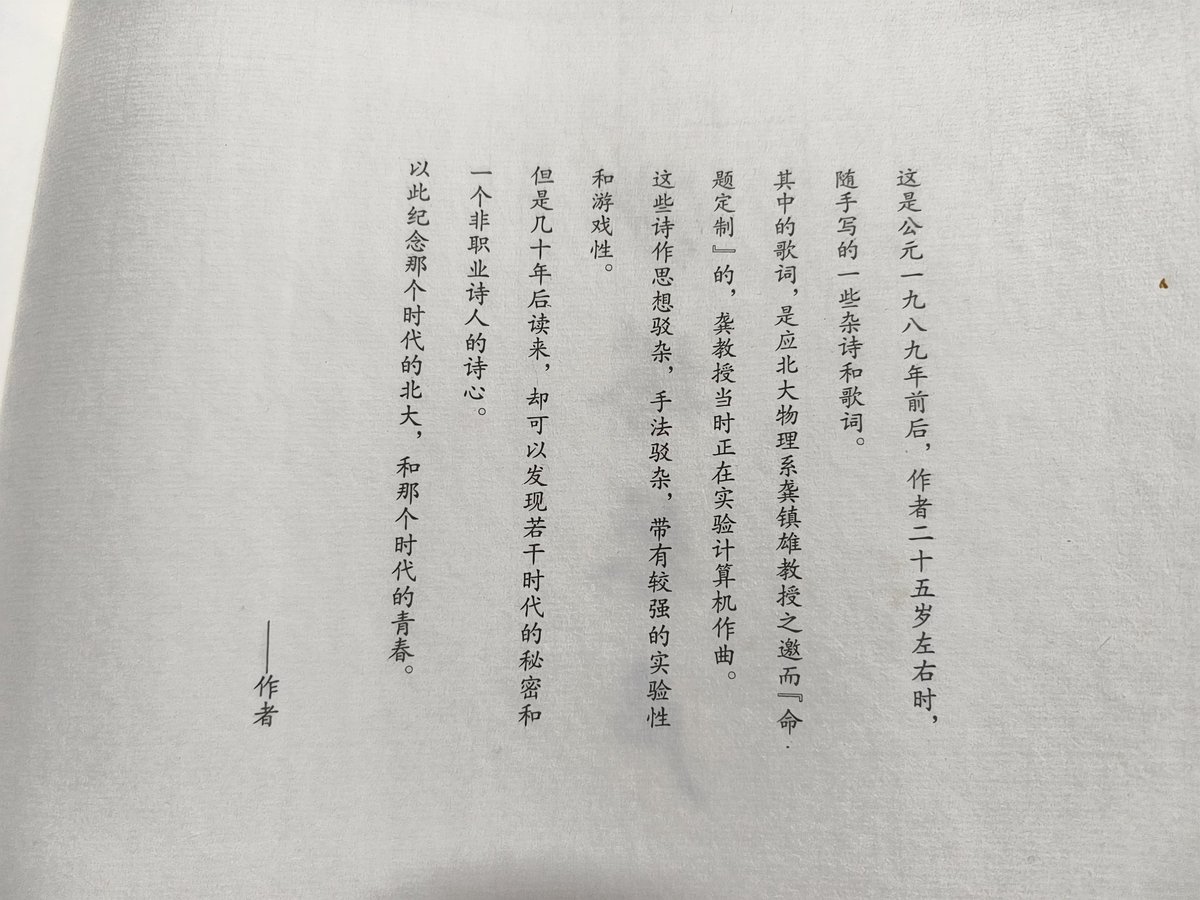 这是公元一九八九年前后，作者二十五岁左右时，
随手写的一些杂诗和歌词。
其中的歌词，是应北大物理系龚镇雄教授之邀而『命
题定制』的，龚教授当时正在实验计算机作曲。
这些诗作思想驳杂，手法驳杂，带有较强的实验性
和游戏性。
但是几十年后读来，却可以发现若干时代的秘密和
一个非职业诗人的诗心。
以此纪念那个时代的北大，和那个时代的青春。
——作者